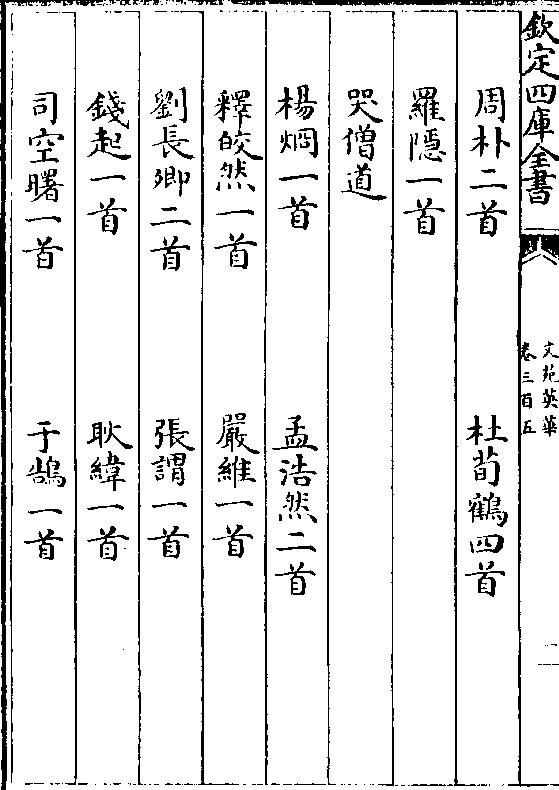 欽定四庫全書
文苑英華
卷三百五
二
周朴二首 杜荀鶴四首
羅隱一首
哭僧道
楊烱一首 孟浩然二首
釋皎然一首 嚴維一首
劉長卿二首 張謂一首
錢起一首 耿緯一首
司空曙一首 于鵠一首